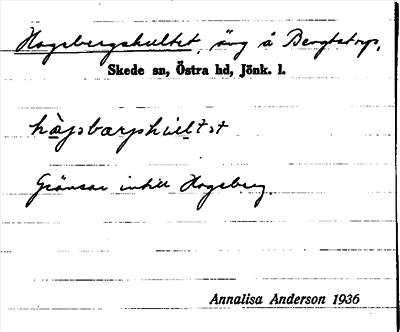 Hogsbergshultet, äng å Bengtstorp,
Skede sn, Östra hd, Jönk. l.
Gränsar intill Hogsberg.
Annalisa Anderson 1936